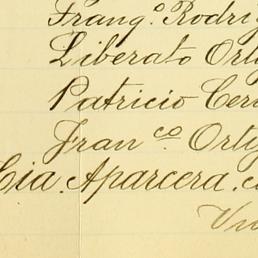 Franqo. Rodri
Liberato Orty
Patricio Cer
Franco. Orty
Cia. Aparcera. c